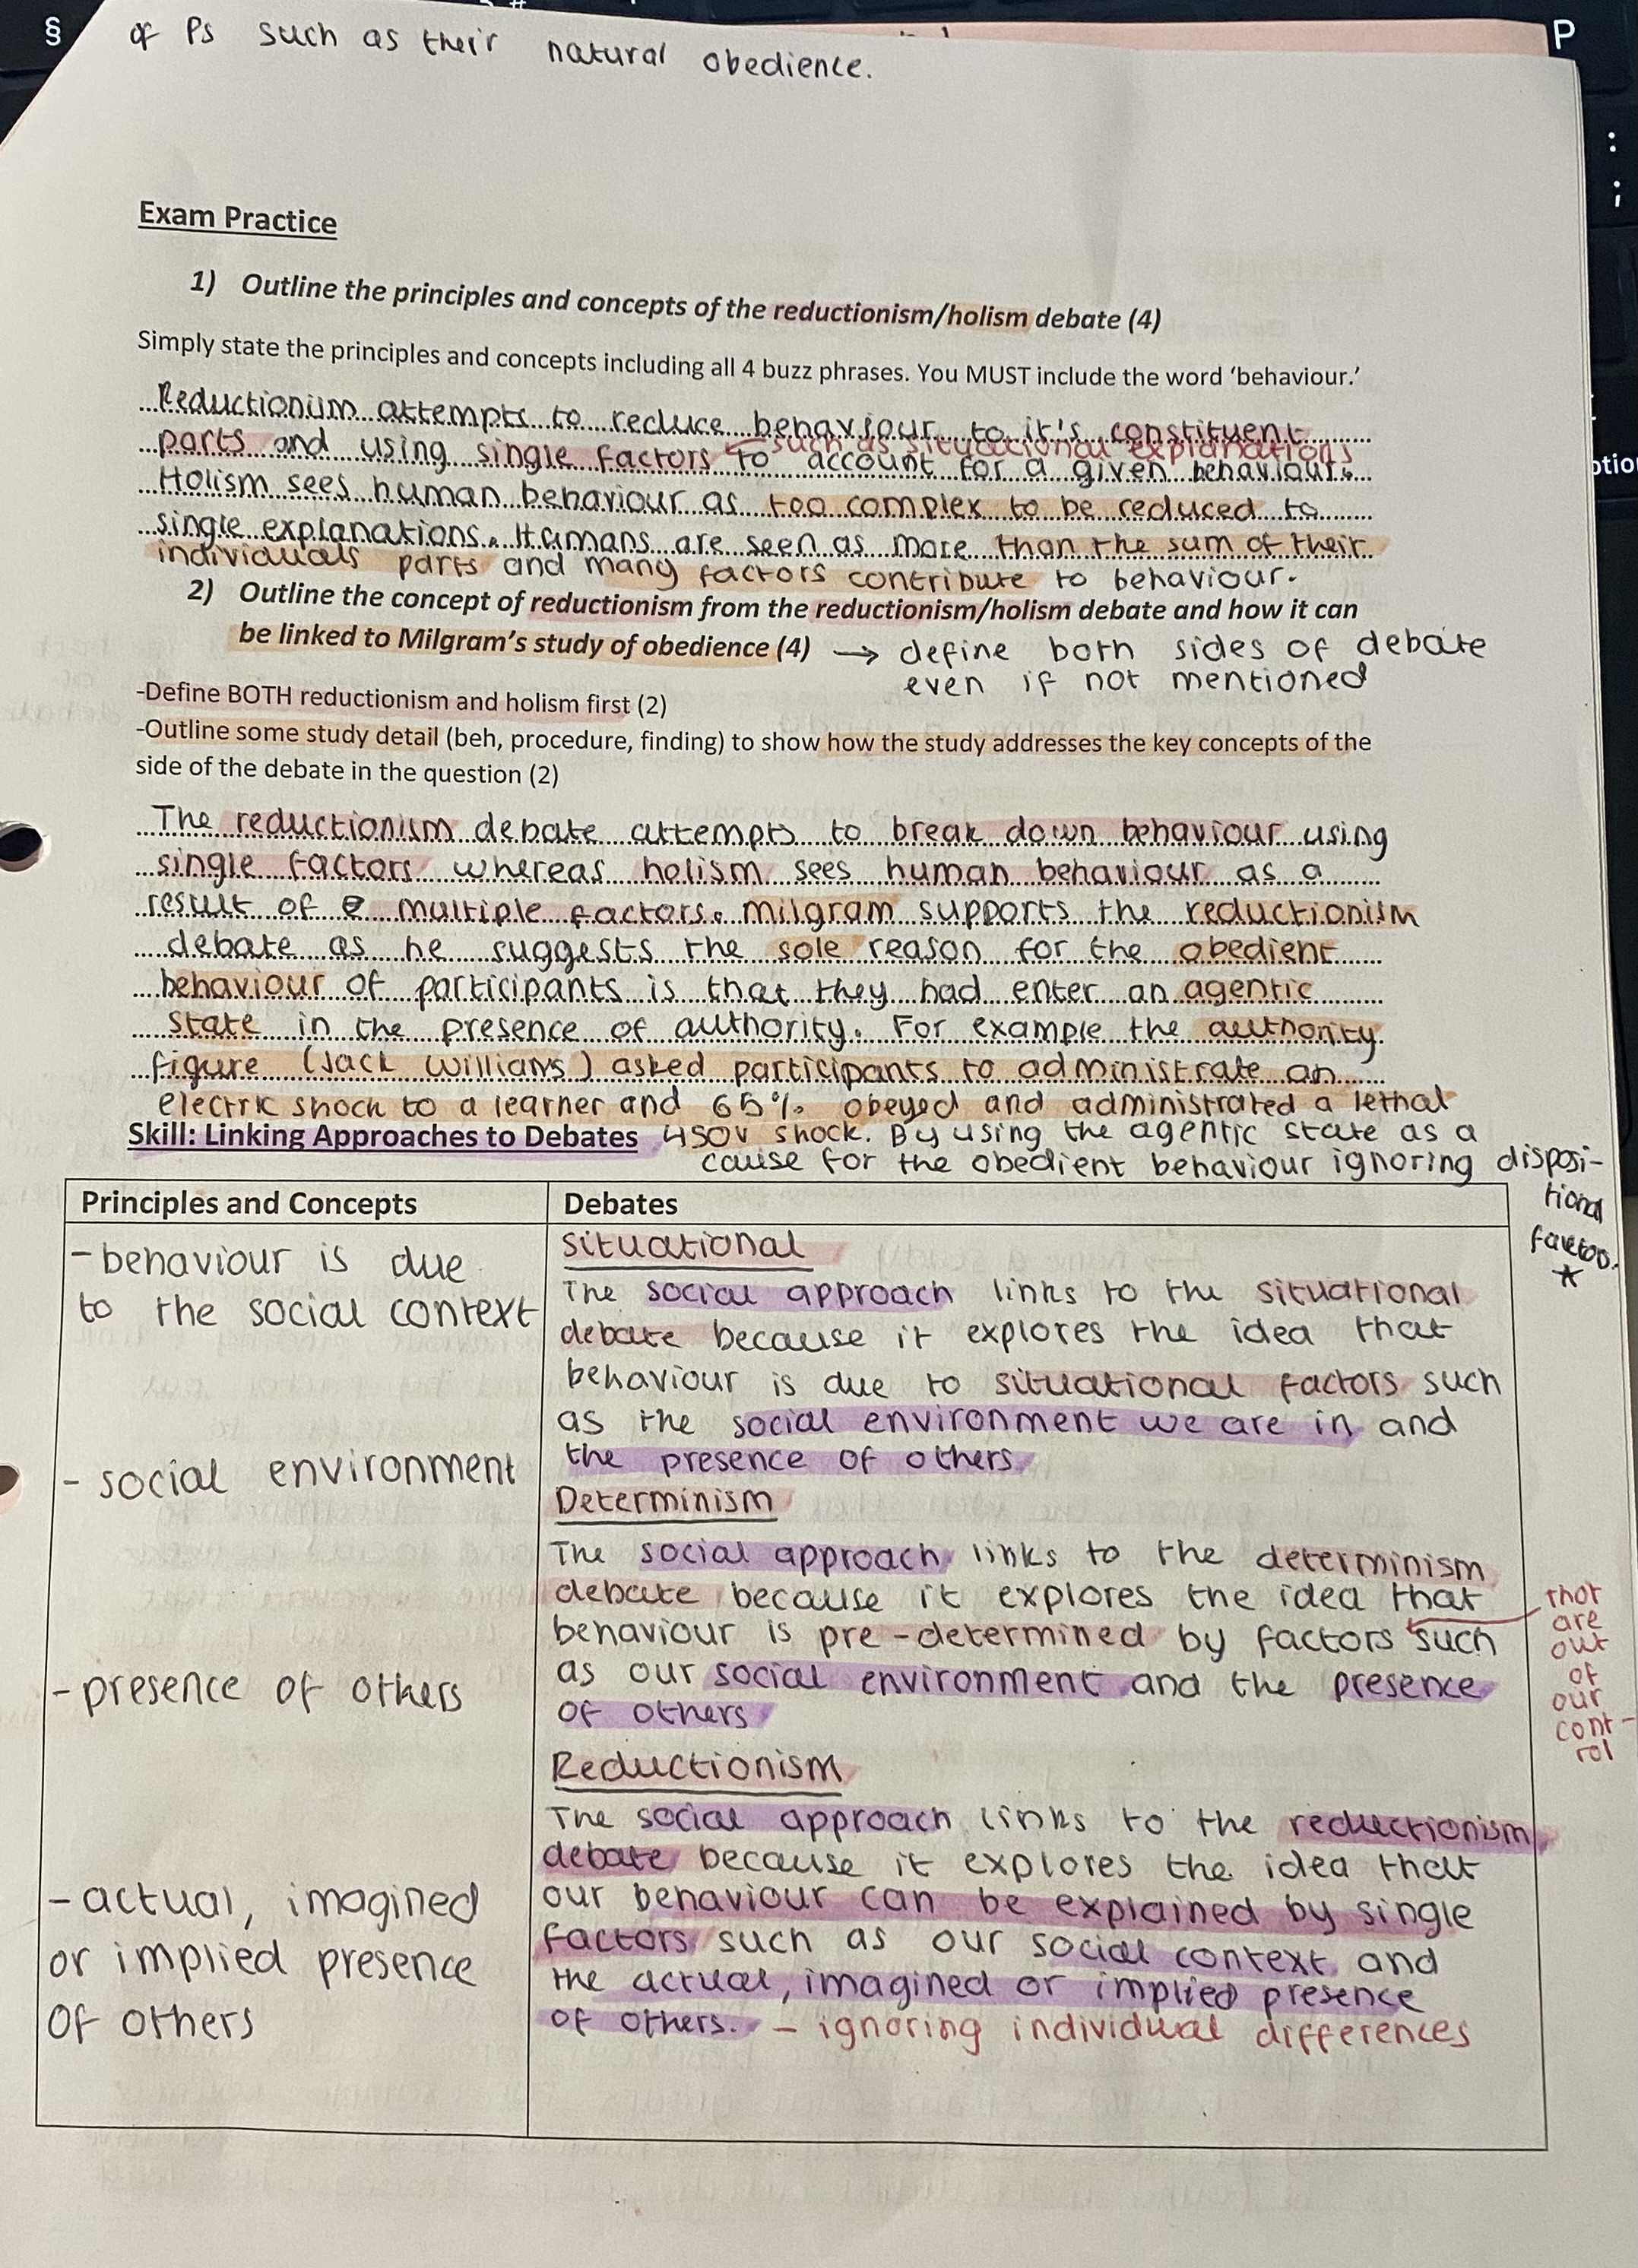 §
P
of Ps such as their natural obedience.
:
;
Exam Practice
1) Outline the principles and concepts of the reductionism/holism debate (4)
Simply state the principles and concepts including all 4 buzz phrases. You MUST include the word ‘behaviour.’
Reductionism attempts to reduce behaviour to it's constituent
such as situational explanations
parts and using single factors to account for a given behaviour.
Holism sees human behaviour as too complex to be reduced to
single explanations. Humans are seen as more than the sum of their
individuals parts and many factors contribute to behaviour.
2) Outline the concept of reductionism from the reductionism/holism debate and how it can
be linked to Milgram’s study of obedience (4) → define both sides of debate
even if not mentioned
-Define BOTH reductionism and holism first (2)
-Outline some study detail (beh, procedure, finding) to show how the study addresses the key concepts of the
side of the debate in the question (2)
The reductionism debate attempts to break down behaviour using
single factors whereas holism sees human behaviour as a
result of multiple factors. Milgram supports the reductionism
debate as he suggests the sole reason for the obedient
behaviour of participants is that they had enter an agentic
state in the presence of authority. For example the authority
figure (Jack Williams) asked participants to administrate an
electric shock to a learner and 65% obeyed and administrated a lethal
Skill: Linking Approaches to Debates 450v shock. By using the agentic state as a
cause for the obedient behaviour ignoring disposi-
tional
Principles and Concepts
Debates
- behaviour is due
to the social context
- social environment
- presence of others
- actual, imagined
or implied presence
of others
Situational
The social approach links to the situational
debate because it explores the idea that
behaviour is due to situational factors such
as the social environment we are in and
the presence of others.
Determinism
The social approach links to the determinism
debate because it explores the idea that
behaviour is pre-determined by factors such
as our social environment and the presence
of others
that
are
out
of
our
cont-
rol
Reductionism
The social approach links to the reductionism
debate because it explores the idea that
our behaviour can be explained by single
factors such as our social context and
the actual, imagined or implied presence
of others. - ignoring individual differences